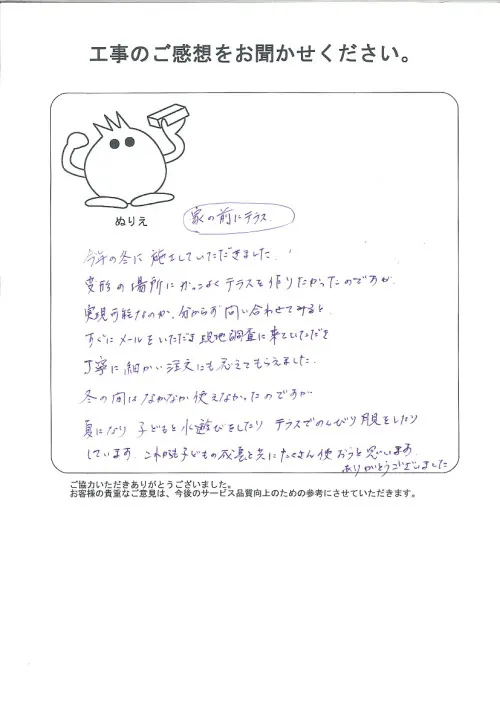 工事のご感想をお聞かせください。
ぬりえ
家の前にテラス
今年の冬に施工していただきました。
変形の場所にかっこよくテラスを作りたかったのですが、
実現可能なのか、分からず問い合わせてみると、
すぐにメールをいただき現地調査に来ていただき
丁寧に細かい注文にも応えてもらえました。
冬の間はなかなか使えなかったのですが
夏になり子どもと水遊びをしたりテラスでのんびり月見をしたり
しています。これからも子どもの成長と共にたくさん使おうと思います。
ありがとうございました
ご協力いただきありがとうございました。
お客様の貴重なご意見は、今後のサービス品質向上のための参考にさせていただきます。